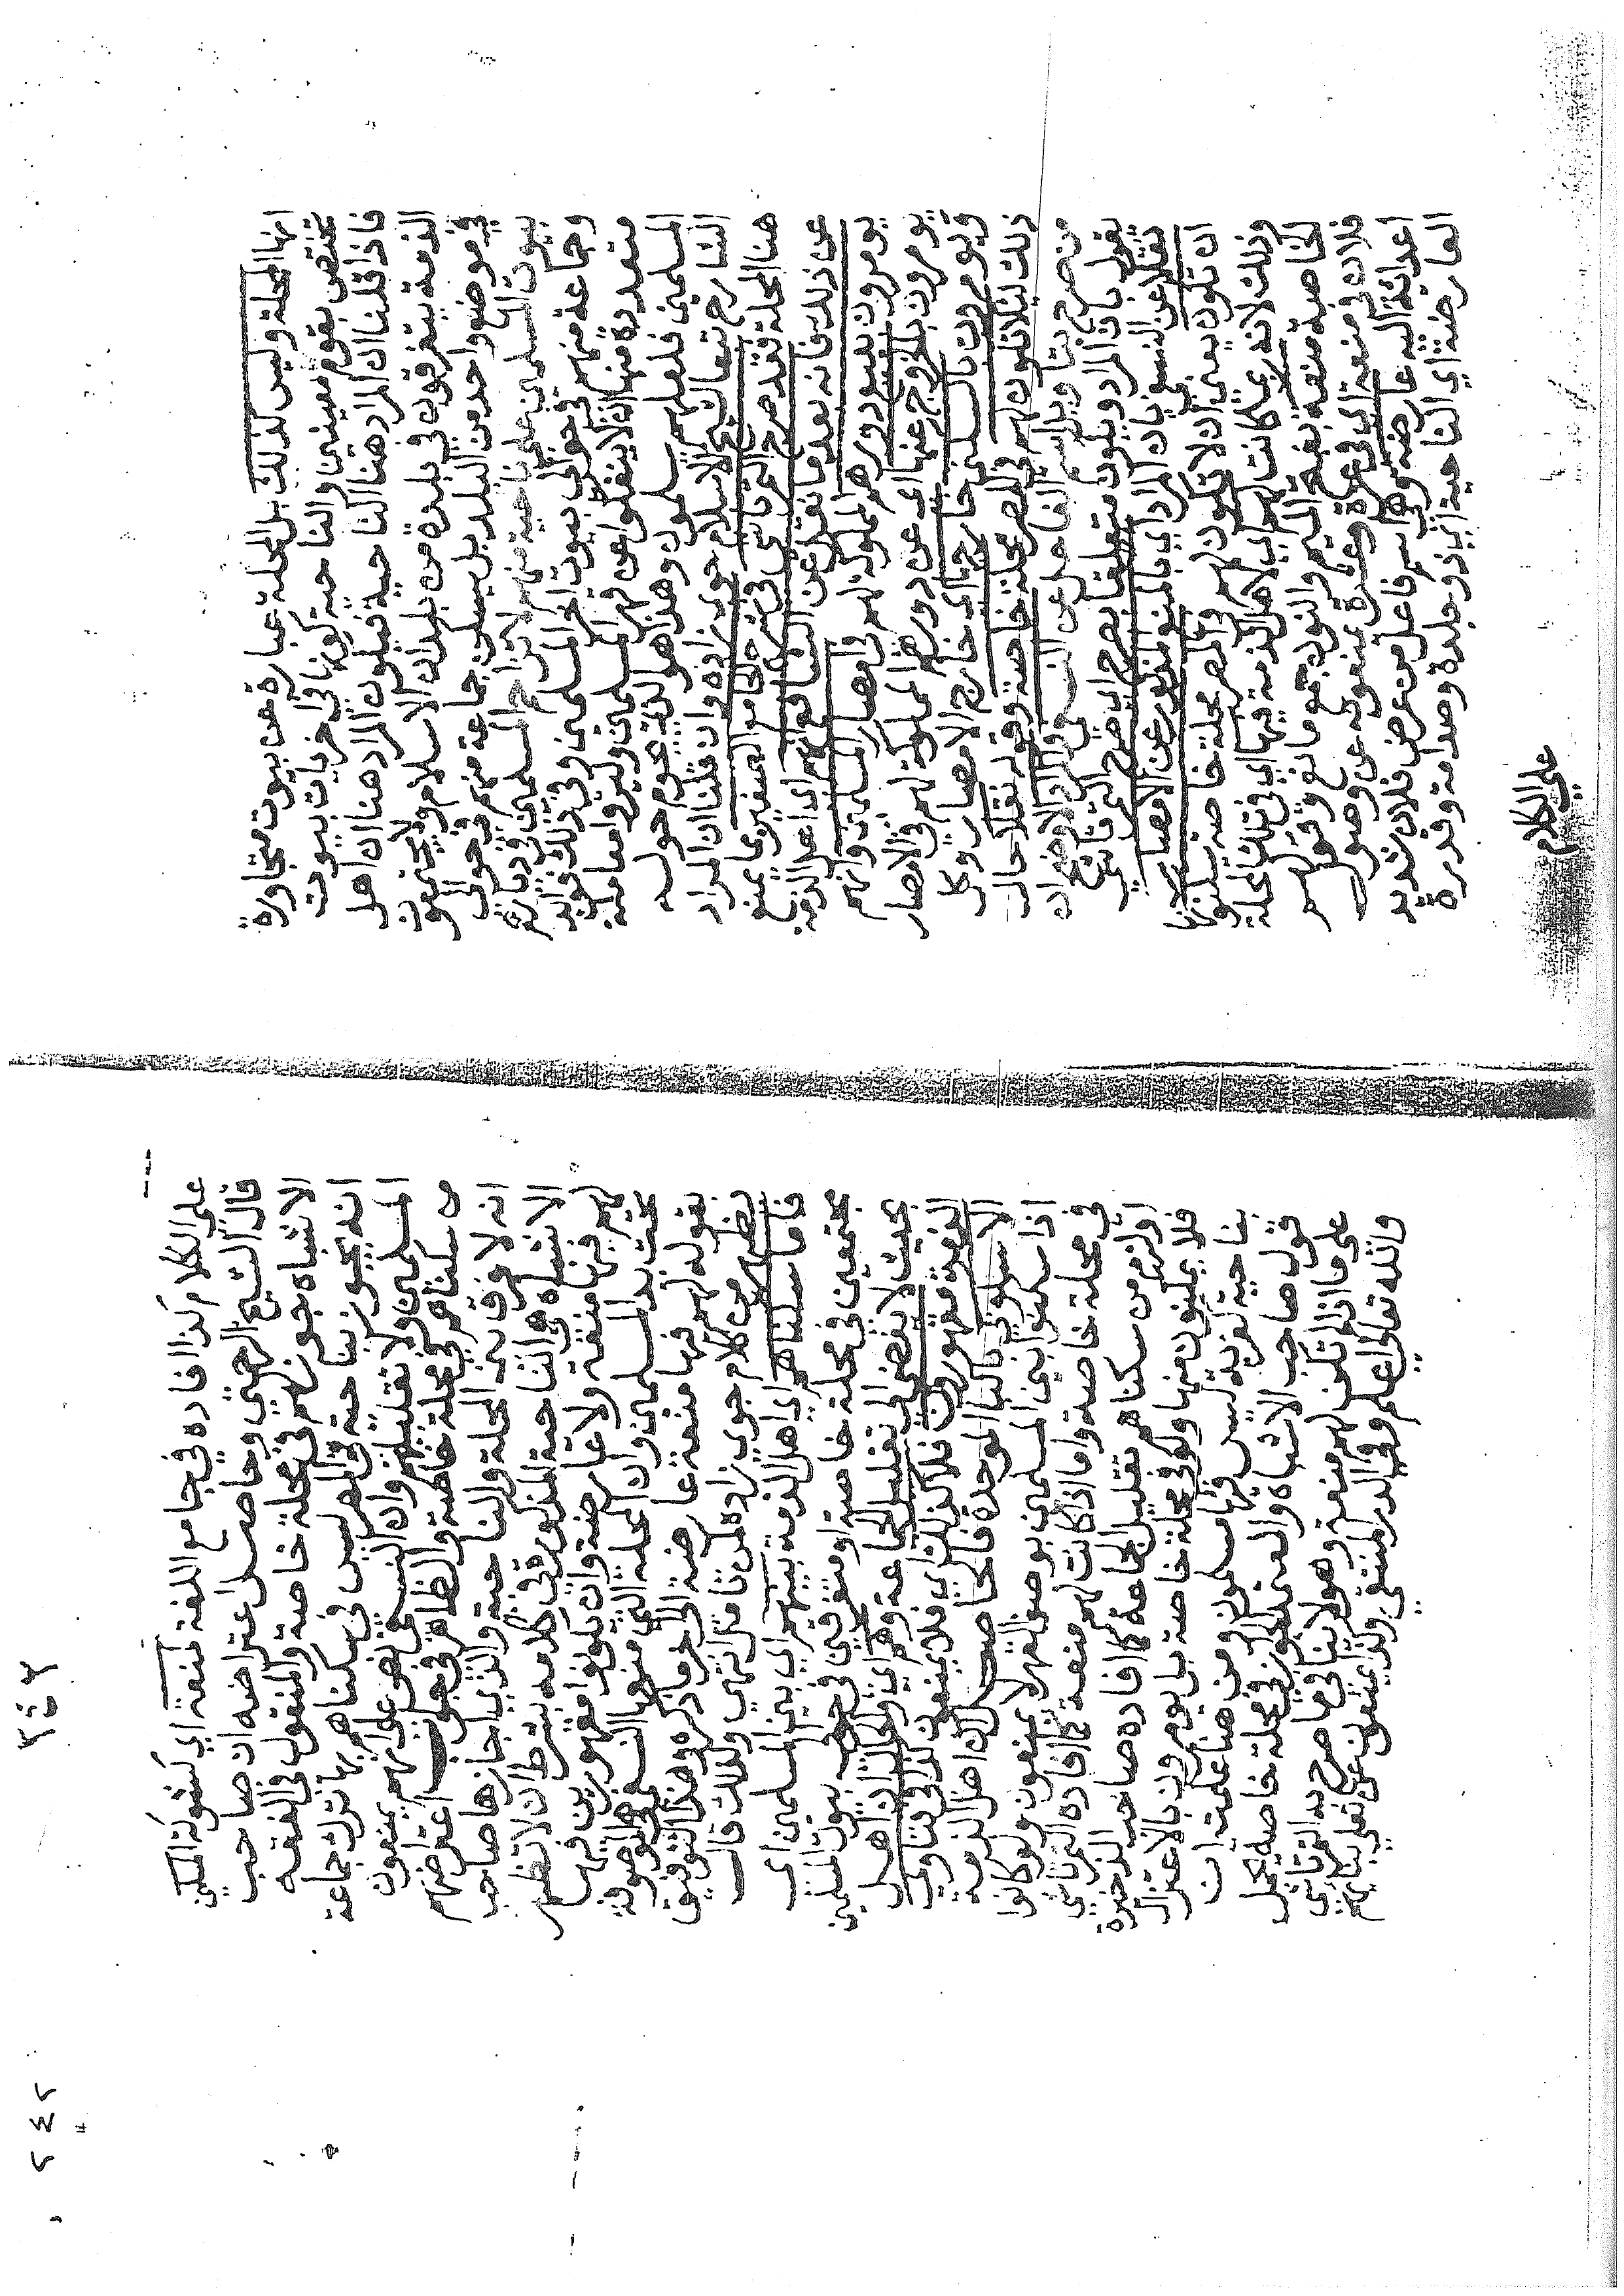 انها المحلة وليس كذلك بل المحلة عبارة عن بيوت متجاورة
تختص بقوم معينين والناحية كونها في اخريات بيوت
فاذا قلنا ان المراد هنا الناحية فيكون المراد هنا ان اهل
الذمة يتفرقون في بلدة من بلدان الاسلام ولا يجتمعون
في موضع واحد من البلد بل يسكن جماعة منهم في حوالي
بيوت المسلمين على ناحية منهم لا تزاحم المسلمين في ديارهم
وجماعة منهم في حوالي بيوت اخر المسلمين وفي ذلك فوايد
متعددة منها ان لا ينفكوا عن قهر المسلمين وليروا معاملة
المسلمين فلعلهم يسلمون وهذا هو الذي يحوم حوله
الشارح تبعا لشيخ الاسلام جوي زاده وان قلنا ان المراد
هنا المحلة فقد صرح التمرتاشي في شرح الجامع الصغير بما يمنع
عن ذلك فانه بعدما نقل عن الشافعي انهم اي اهل الذمة
يومرون ببيع دورهم المملوكة لهم في امصار المسلمين وانهم
يومرون بالخروج عنها اي عن دورهم المملوكة لهم في الامصار
ويومرون بالسكنى خارجها اي خارج الامصار وكل
ذلك لئلا تكون لهم في المصر محلة خاصة وقوله نقلا حال
من صرح بتاويل اسم الفاعل عن النسفي والمراد لا وضح ان
يقول بان المراد ويكون متعلقا بصرح اي صرح التمرتاشي
نقلا عن النسفي بان المراد اي بالمنع المذكور عن الامصار
ان تكون يعني ان لا تكون لهم في المصر محلة خاصة يسكنونها
وذلك لانه ربما كانت لهم اي لاهل الذمة فيها اي في تلك المحلة
الخاصة منعة بفتح الميم والنون جمع مانع وقولهم
فلان في منعة اي في عزة وعشرة يمنعونه عن وصول
اعدائه اليه عارضة وهو اسم فاعل من عرض فلان شديد
العارضة اي الناحية اي ذو جلدة وصدامة وقدرة
على الكلام
على الكلام كذا افاده في جامع اللغة لمنعة اي كشوكة المسلمين
قال الشيخ الرحمتي وحاصل اعتراضه ان صاحب
الاشباه جوز لهم في محلة خاصة والمنقول في الفقه
انه يجوز بناحية في المصر ليس في سكناهم بها ترك جماعة
المسلمين ولا تقليلهم وان النسفي نص على انهم يمنعون
من سكناهم في محلة خاصة والظاهر في جواب اعتراضهم
انه لا فرق بين المحلة والناحية والذي اجازها صاحب
الاشباه هي الناحية المذكورة في كلامه بشرط ان لا تظهر
لهم فيها منعة ولا عارضة وان يكونوا مقهورين فيها
تحت يد المسلمين وان المحلة التي منعها النسفي هي الموصوفة
بقوله لهم فيها منعة عارضة الى اخر ما ذكره وهذا التوفيق
يظهر من كلام جوي زاده لمن تامل انتهى ولذلك قال
فاما سكناهم اي اهل الذمة بينهم اي بين المسلمين اي
مجتمعين في محلة خاصة او متفرقين في خلال بيوت المسلمين
بحيث لا يفضي الى تقليل الجماعة وهم اي والحال ان اهل
الذمة مقهورون فلا كذلك اي فلا يمنعون كذا في فتاوى
الاسكوبي بالباء الموحدة فالحاصل ان اهل الذمة
اذا سكنوا بين المسلمين بوصف القهر لا يمنعون ولو كانوا
في محلة خاصة واما اذا كانت لهم منعة كما افاده التمرتاشي
او لزم من سكناهم تقليل الجماعة كما افاده صاحب الذخيرة
فلا يمكنون منها ولو في محلة خاصة بل يومرون بالاعتزال
بناحية لقرية ليس فيها مسلمون ومن هنا علمت ان
قول صاحب الاشباه والمعتمد الجواز في محلة خاصة يحمل
على ما اذا لم تكن لهم منعة وهو لا ينافي ما صرح به التمرتاشي
والله تعالى اعلم وفي الدر المنتقى وكذا يمنعون عن تعلي بنائهم
٣٤٣
٢٤٢